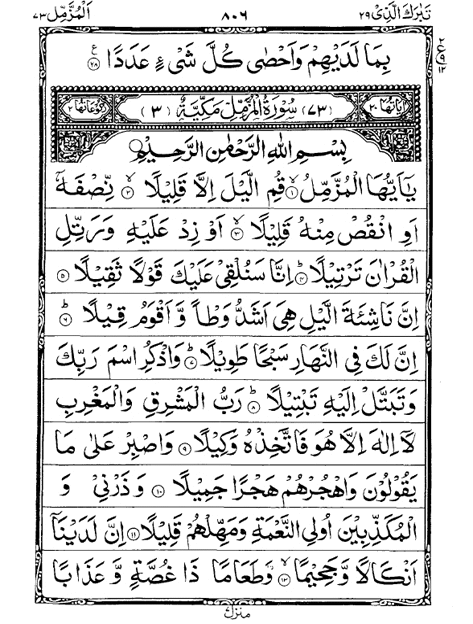 تَبٰرَكَ الَّذِیْ ٢٩ ٨٠٦ اَلْمُزَّمِّل ٧٣
بِمَا لَدَیْهِمْ وَاَحْصٰی كُلَّ شَیْءٍ عَدَدًا ٢٨ ع
٢ ٩ ١٢
اٰیَاتُهَا ٢٠ (٧٣) سُوْرَةُ الْمُزَّمِّلِ مَكِّیَّةٌ (٣) رُكُوْعَاتُهَا ٢
بِسْمِ اللهِ الرَّحْمٰنِ الرَّحِیْمِ
یٰۤاَیُّهَا الْمُزَّمِّلُ ۙ١ قُمِ الَّیْلَ اِلَّا قَلِیْلًا ۙ٢ نِّصْفَهٗۤ
اَوِ انْقُصْ مِنْهُ قَلِیْلًا ۙ٣ اَوْ زِدْ عَلَیْهِ وَرَتِّلِ
الْقُرْاٰنَ تَرْتِیْلًا ؕ٤ اِنَّا سَنُلْقِیْ عَلَیْكَ قَوْلًا ثَقِیْلًا ٥
اِنَّ نَاشِئَةَ الَّیْلِ هِیَ اَشَدُّ وَطْاً وَّاَقْوَمُ قِیْلًا ؕ٦
اِنَّ لَكَ فِی النَّهَارِ سَبْحًا طَوِیْلًا ؕ٧ وَاذْكُرِ اسْمَ رَبِّكَ
وَتَبَتَّلْ اِلَیْهِ تَبْتِیْلًا ؕ٨ رَبُّ الْمَشْرِقِ وَالْمَغْرِبِ
لَاۤ اِلٰهَ اِلَّا هُوَ فَاتَّخِذْهُ وَكِیْلًا ٩ وَاصْبِرْ عَلٰی مَا
یَقُوْلُوْنَ وَاهْجُرْهُمْ هَجْرًا جَمِیْلًا ١٠ وَذَرْنِیْ وَ
الْمُكَذِّبِیْنَ اُولِی النَّعْمَةِ وَمَهِّلْهُمْ قَلِیْلًا ١١ اِنَّ لَدَیْنَاۤ
اَنْكَالًا وَّجَحِیْمًا ۙ١٢ وَّطَعَامًا ذَا غُصَّةٍ وَّعَذَابًا
منزل